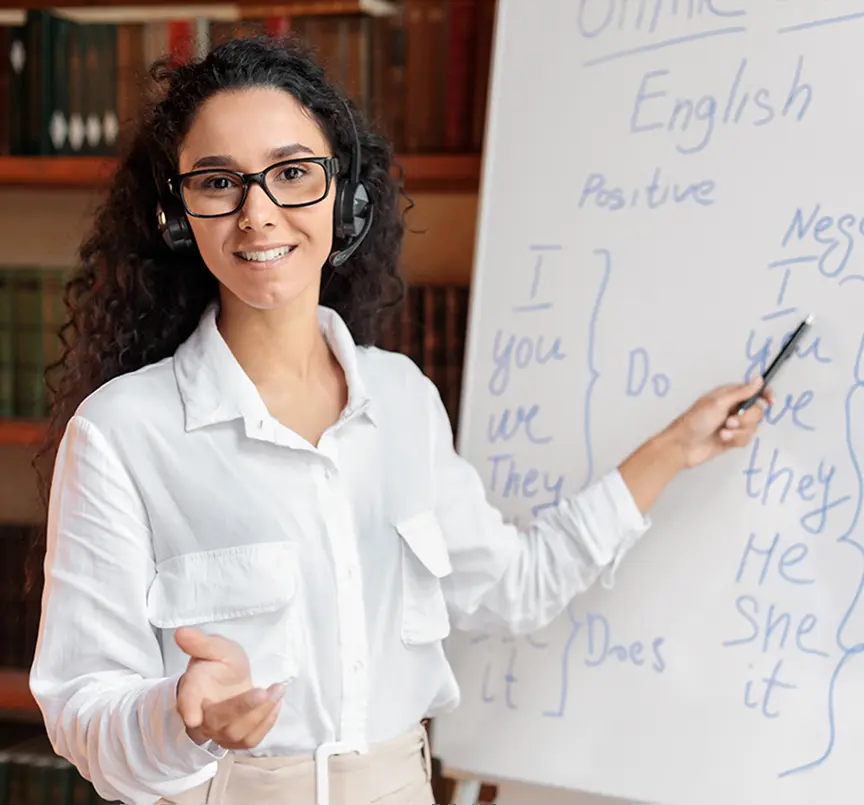 English
Positive
I
you
we
They
Do
it
Does
I
you
we
they
He
She
it